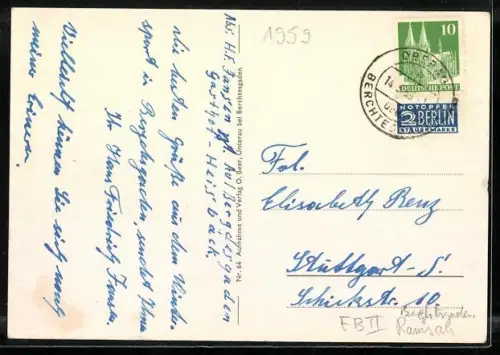 1959
Abs. H.F. Jansen zzt. Au/Berchtesgaden
Gasthof - Heissbäck.
Die besten Grüße aus dem Winter-
sport in Berchtesgaden, sendet Ihnen
Ihr Hans Friedrich Jansen.
Vielleicht können Sie sich noch
meiner erinnern.
Nr. 64 Aufnahme und Verlag O. Beer, Unterau bei Berchtesgaden
10
DEUTSCHE POST
NOTOPFER
2 BERLIN
STEUERMARKE
BERCHTE
14
Frl.
Elisabeth Renz
Stuttgart-S.
Schickstr. 10
FB II
Berchtesgaden
Ramsau